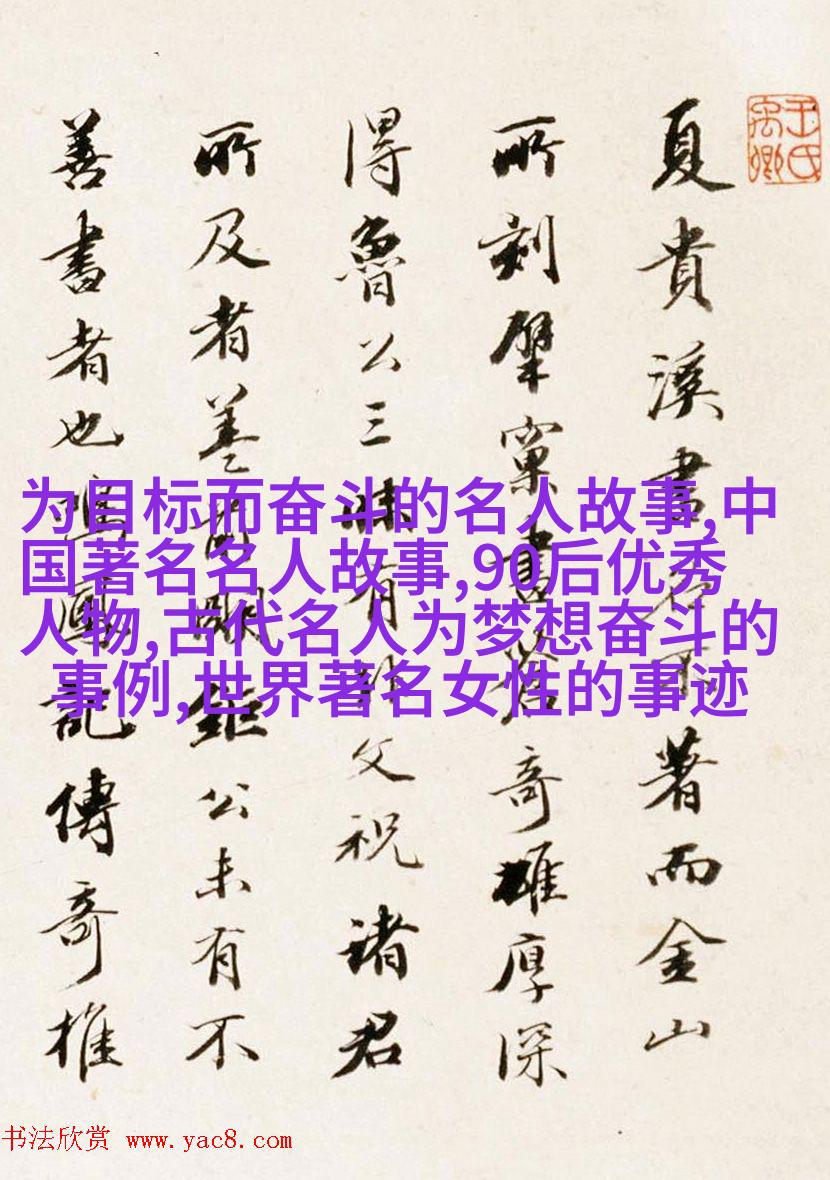 王氏禹卿
夏貴溪書不著而金山
所刻擘窠書奇雄厚深
得魯公三昧有父祝諸君
所及者蓋前明鉅公未有不
善書者也鳴鳳記傳奇推
为目标而奋斗的名人故事,中
国著名名人故事,90后优秀
人物,古代名人为梦想奋斗的
事例,世界著名女性的事迹
书法欣赏 www.yac8.com